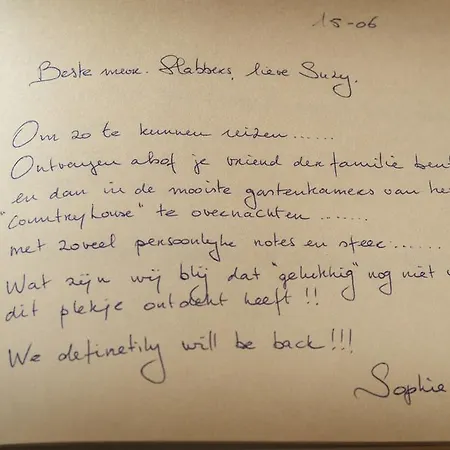 15-06
Beste mevr. Slabbers, lieve Suzy.
Om zo te kunnen reizen......
Ontvangen alsof je vriend der familie bent
en dan in de mooiste gastenkamers van he
"Countryhouse" te overnachten ........
met zoveel persoonlijke notes en sfeer.......
Wat zijn wij blij dat "gelukkig" nog niet
dit plekje ontdekt heeft !!
We definetily will be back!!!
Sophie